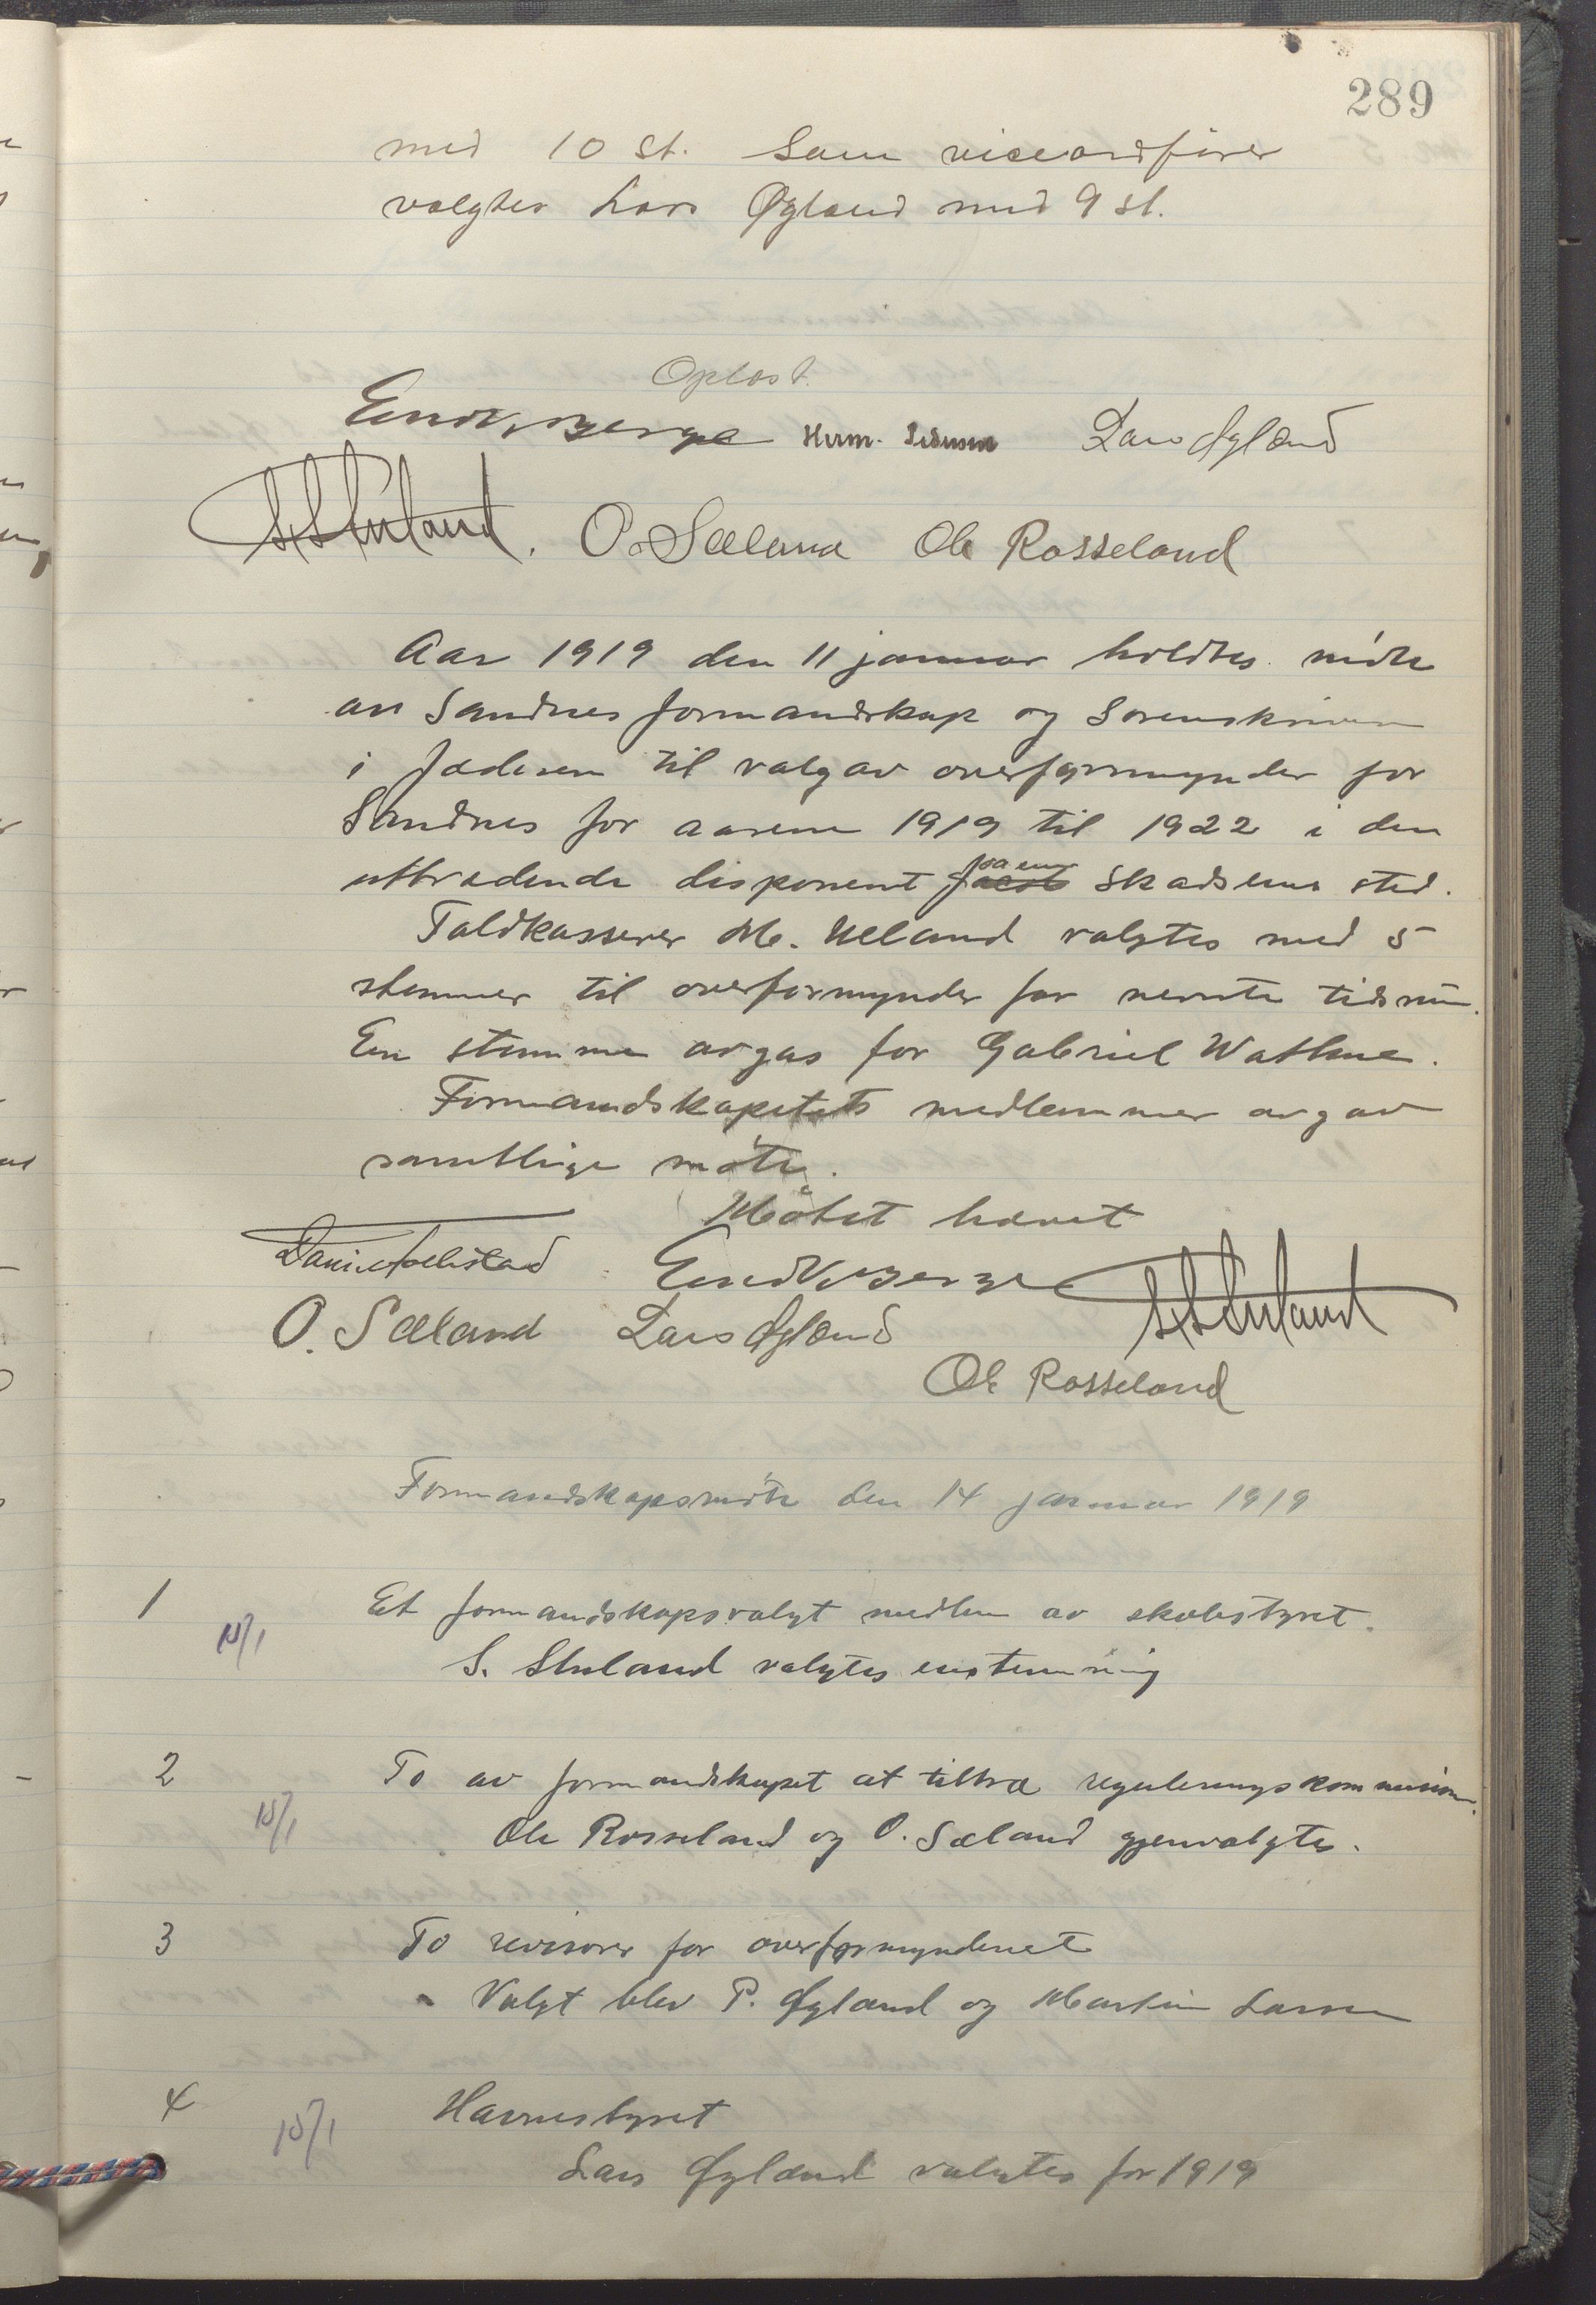 289
med 10 st. Som viceordfører
valgtes Lars Øgland med 9 st.
Oplæst.
Endr. Berge Herm. Pedersen Lars Øglænd
S. Stuland. O. Sæland Ole Rosseland
Aar 1919 den 11 januar holdtes møte
av Sandnes formandskap og Sorenskriveren
i Jæderen til valg av overformynder for
Sandnes for aarene 1919 til 1922 i den
uttrædende disponent Joaem Skadsems sted.
Toldkasserer M. Ueland valgtes med 5
stemmer til overformynder for nevnte tidsrum.
En stemme avgas for Gabriel Wathne.
Formandskapets medlemmer avgav
samtlige møte.
Møtet hævet
Daniel Endr. Berge S. Stuland
O. Sæland Lars Øglænd
Ole Rosseland
Formandskapsmøte den 14 januar 1919
1 Et formandskapsvalgt medlem av skolestyret.
15/1
S. Stuland valgtes enstemmig
2 To av formandskapet at tiltræ reguleringskommission.
15/1
Ole Rosseland og O. Sæland gjenvalgtes.
3 To revisorer for overformynderiet
Valgt blev P. Øgland og Martin Larsen
4 Havnestyret
15/1
Lars Øglænd valgtes for 1919